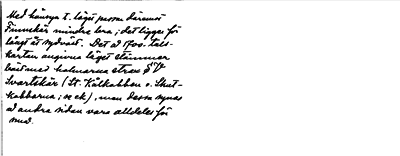 Med hänsyn t. läget passa däremot
Finnskär mindre bra; det ligger för
långt åt sydväst. Det å 1700-tals-
kartan angivna läget stämmer
bäst med holmarna strax
Svartskär (St. Kälkobben o. Skut-
kobbarna; se ek), men dessa synas
å andra sidan vara alldeles för
små.